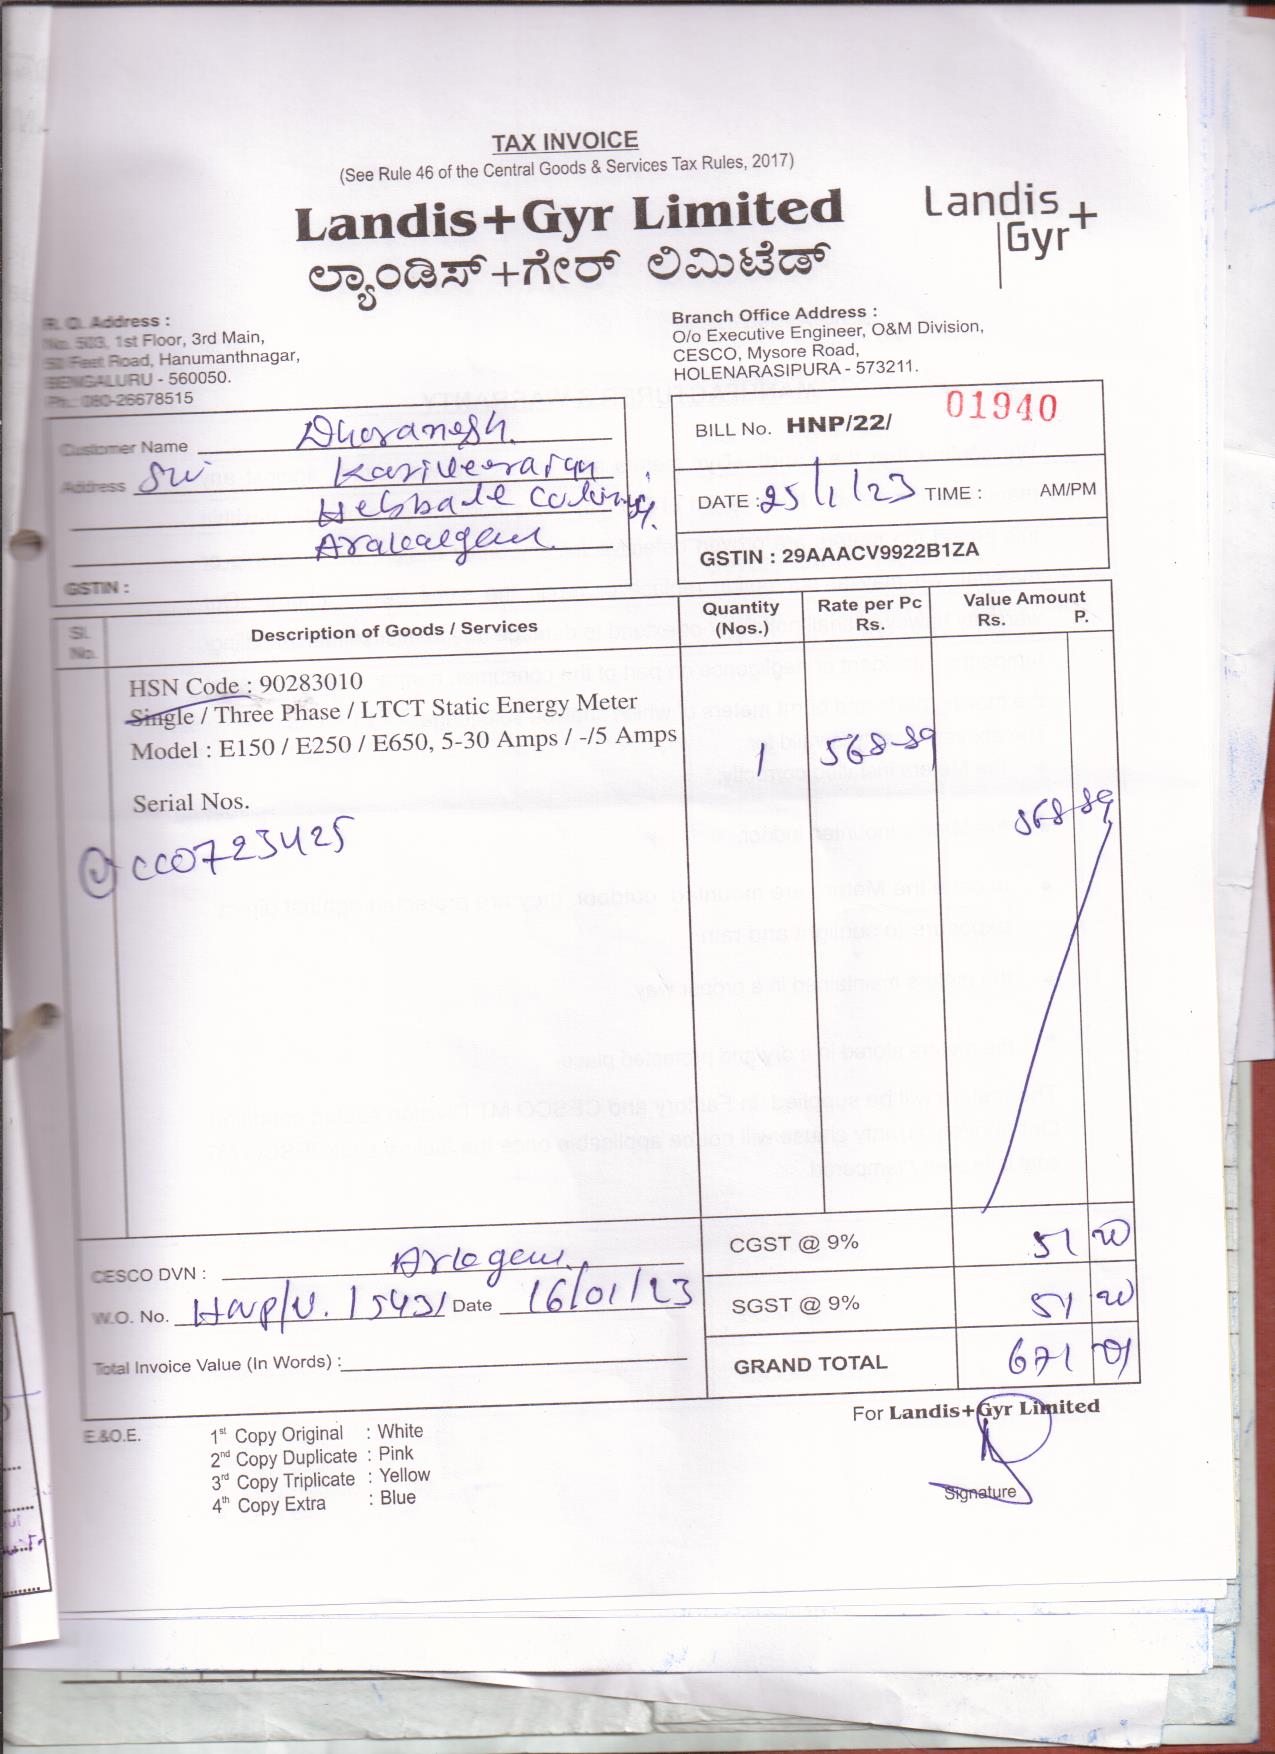 TAX INVOICE
(See Rule 46 of the Central Goods & Services Tax Rules, 2017)
Landis+Gyr Limited
ಲ್ಯಾಂಡಿಸ್+ಗೇರ್ ಲಿಮಿಟೆಡ್
Landis
Gyr+
R. O. Address :
No. 503, 1st Floor, 3rd Main,
50 Feet Road, Hanumanthnagar,
BENGALURU - 560050.
Ph.: 080-26678515
Branch Office Address :
O/o Executive Engineer, O&M Division,
CESCO, Mysore Road,
HOLENARASIPURA - 573211.
Customer Name Dharanesh.
Address Sri
GSTIN :
BILL No. HNP/22/ 01940
DATE : 25/1/23 TIME : AM/PM
GSTIN : 29AAACV9922B1ZA
Sl. No. Description of Goods / Services Quantity (Nos.) Rate per Pc Rs. Value Amount Rs. P.
HSN Code : 90283010
Single / Three Phase / LTCT Static Energy Meter
Model : E150 / E250 / E650, 5-30 Amps / -/5 Amps 1 568-89
568-89
Serial Nos.
CC0723425
CGST @ 9% 51 20
CESCO DVN :
W.O. No. 15431 Date 16/01/23
SGST @ 9% 51 20
Total Invoice Value (In Words) :
GRAND TOTAL 671
For Landis+Gyr Limited
Signature
E.&O.E.
1st Copy Original : White
2nd Copy Duplicate : Pink
3rd Copy Triplicate : Yellow
4th Copy Extra : Blue